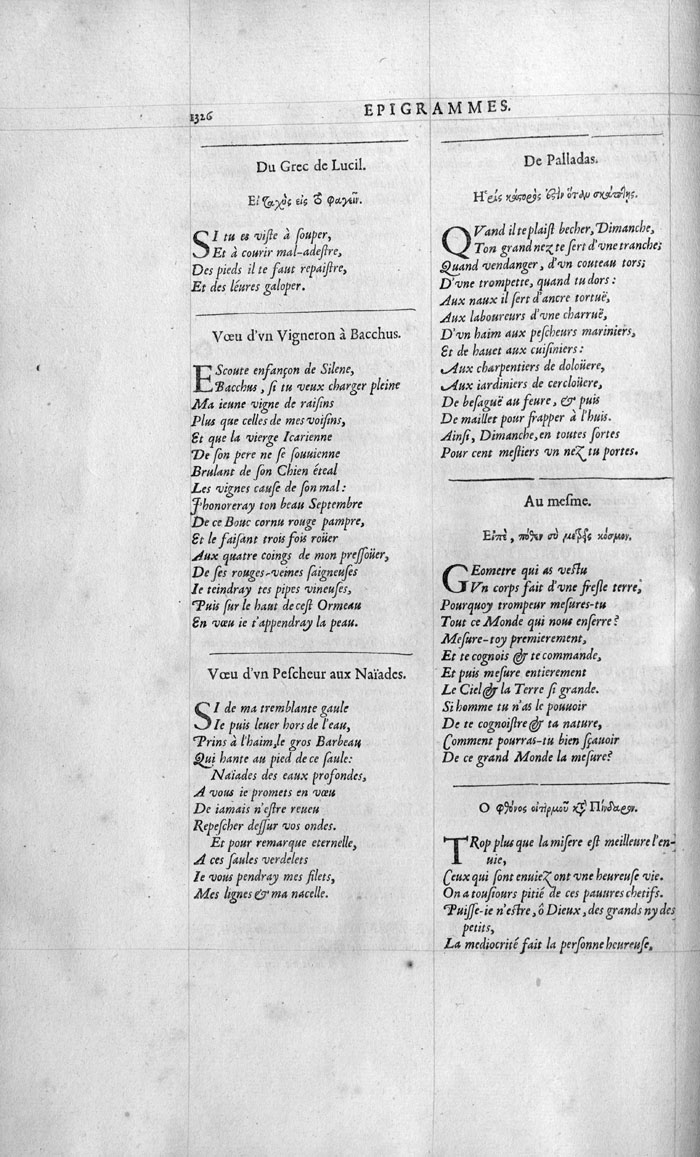 1326
EPIGRAMMES.
Du Grec de Lucil.
Εἰ ταχὺς εἰς τὸ φαγεῖν.
SI tu es viſte à ſouper,
Et à courir mal-adeſtre,
Des pieds il te faut repaiſtre,
Et des léures galoper.
Vœu d'vn Vigneron à Bacchus.
EScoute enfançon de Silene,
Bacchus, ſi tu veux charger pleine
Ma ieune vigne de raiſins
Plus que celles de mes voiſins,
Et que la vierge Icarienne
De ſon pere ne ſe ſouuienne
Brulant de ſon Chien éteal
Les vignes cauſe de ſon mal:
J'honoreray ton beau Septembre
De ce Bouc cornu rouge pampre,
Et le faiſant trois fois roüer
Aux quatre coings de mon preſſoüer,
De ſes rouges-veines ſaigneuſes
Ie teindray tes pipes vineuſes,
Puis ſur le haut de ceſt Ormeau
En vœu ie t'appendray la peau.
Vœu d'vn Peſcheur aux Naïades.
SI de ma tremblante gaule
Ie puis leuer hors de l'eau,
Prins à l'haim, le gros Barbeau
Qui hante au pied de ce ſaule:
Naïades des eaux profondes,
A vous ie promets en vœu
De iamais n'eſtre reueu
Repeſcher deſſur vos ondes.
Et pour remarque eternelle,
A ces ſaules verdelets
Ie vous pendray mes filets,
Mes lignes & ma nacelle.
De Palladas.
QVand il te plaiſt becher, Dimanche,
Ton grand nez te ſert d'vne tranche;
Quand vendanger, d'vn couteau tors;
D'vne trompette, quand tu dors:
Aux naux il ſert d'ancre tortuë,
Aux laboureurs d'vne charruë,
D'vn haim aux peſcheurs mariniers,
Et de hauet aux cuiſiniers:
Aux charpentiers de doloüere,
Aux iardiniers de cercloüere,
De beſaguë au feure, & puis
De maillet pour frapper à l'huis.
Ainſi, Dimanche, en toutes ſortes
Pour cent meſtiers vn nez tu portes.
Au meſme.
Εἰπὲ, πόθεν σὺ μετρεῖς κόσμον.
GEometre qui as veſtu
Vn corps fait d'vne freſle terre,
Pourquoy trompeur meſures-tu
Tout ce Monde qui nous enſerre?
Meſure-toy premierement,
Et te cognois & te commande,
Et puis meſure entierement
Le Ciel & la Terre ſi grande.
Si homme tu n'as le pouuoir
De te cognoiſtre & ta nature,
Comment pourras-tu bien ſçauoir
De ce grand Monde la meſure?
Ο φθόνος οἰκτιρμοῦ κατὰ Πίνδαρον.
TRop plus que la miſere eſt meilleure l'en-
uie,
Ceux qui ſont enuiez ont vne heureuſe vie.
On a touſiours pitié de ces pauures chetifs.
Puiſſe-ie n'eſtre, ô Dieux, des grands ny des
petits,
La mediocrité fait la perſonne heureuſe,